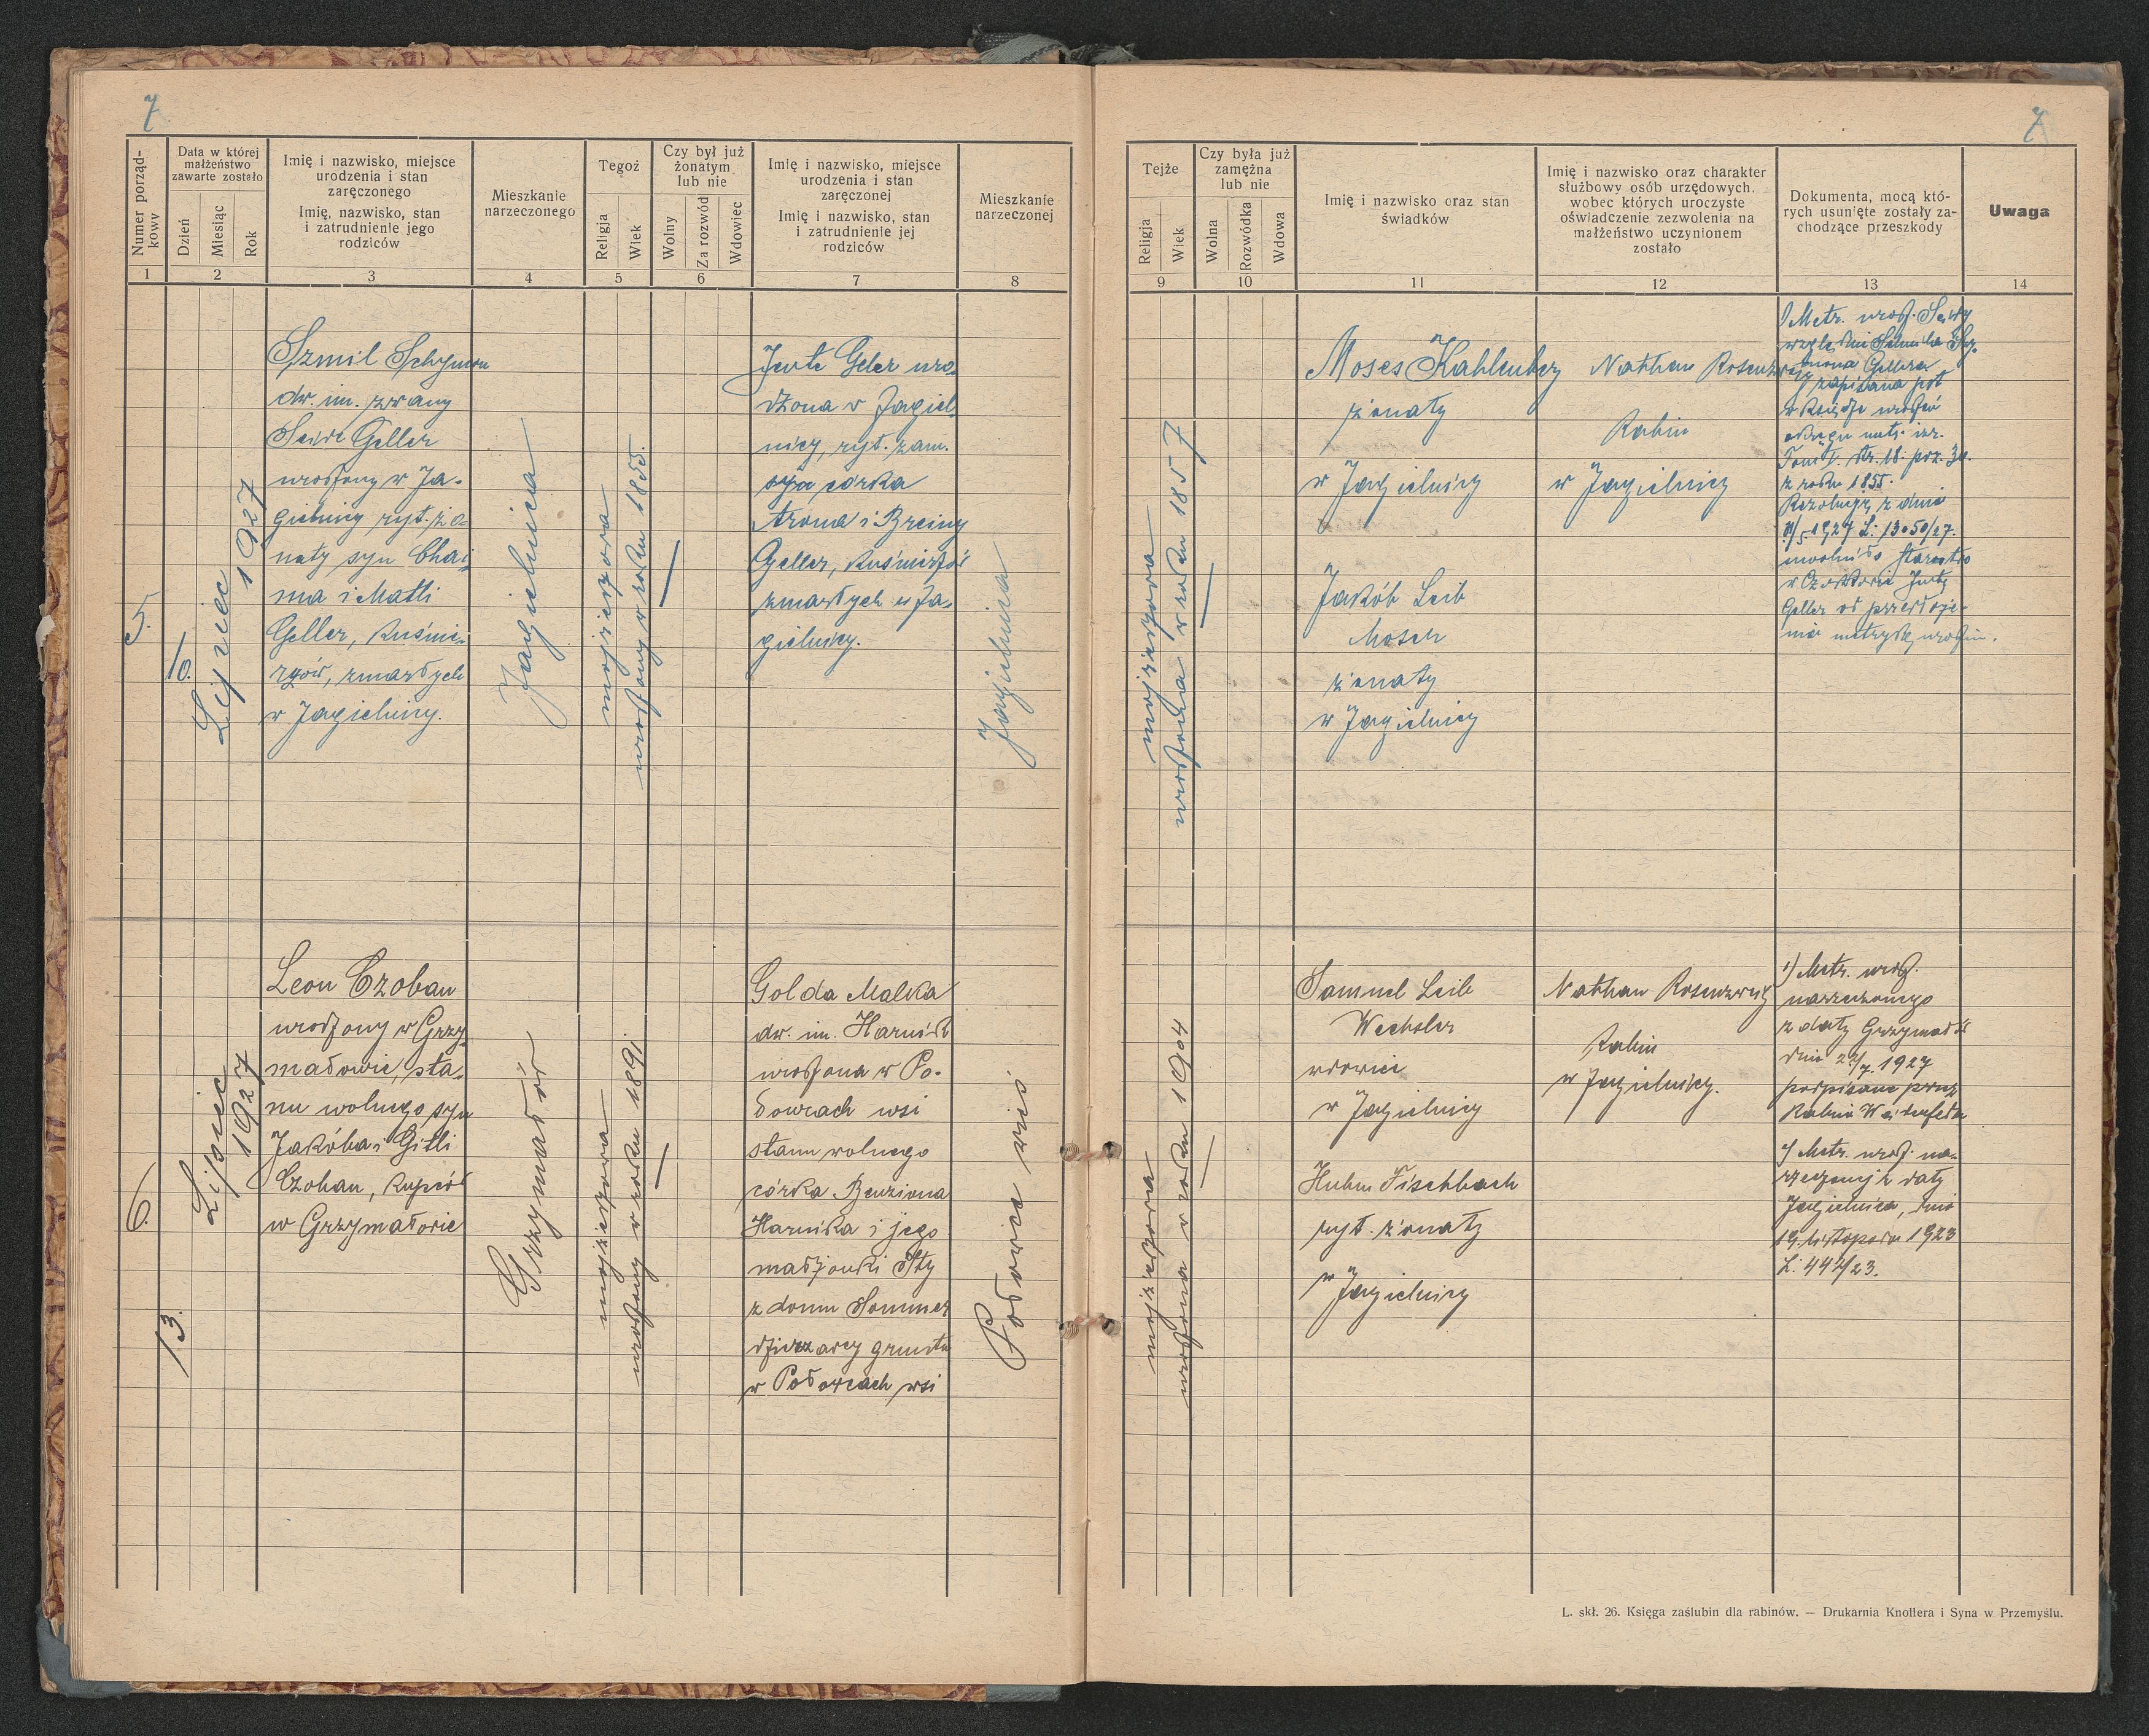 7
7
Numer porząd-
kowy
Data w której
małżeństwo
zawarte zostało
Dzień
Miesiąc
Rok
Imię i nazwisko, miejsce
urodzenia i stan
zaręczonego
Imię, nazwisko, stan
i zatrudnienie jego
rodziców
Mieszkanie
narzeczonego
Tegoż
Religja
Wiek
Czy był już
żonatym
lub nie
Wolny
Za rozwód
Wdowiec
Imię i nazwisko, miejsce
urodzenia i stan
zaręczonej
Imię i nazwisko, stan
i zatrudnienie jej
rodziców
Mieszkanie
narzeczonej
1
2
3
4
5
6
7
8
Tejże
Religja
Wiek
Czy była już
zamężna
lub nie
Wolna
Rozwódka
Wdowa
Imię i nazwisko oraz stan
świadków
Imię i nazwisko oraz charakter
służbowy osób urzędowych,
wobec których uroczyste
oświadczenie zezwolenia na
małżeństwo uczynionem
zostało
Dokumenta, mocą któ-
rych usunięte zostały za-
chodzące przeszkody
Uwaga
9
10
11
12
13
14
5.
10.
Lipiec
1927
Szmil Schymon
dw. im. zwany
Geller
urodzony w Ja-
gielnicy ryt. żo-
naty syn Chai-
ma i Matli
Geller, kuśnie-
rzów, zmarłych
w Jagielnicy.
Jagielnica
mojżeszowa
urodzony w roku 1855.
Jente Geler uro-
dzona w Jagiel-
nicy, ryt. zam.
córka
Arona i Breiny
Geller, kuśnierzów
zmarłych w Ja-
gielnicy.
Jagielnica
mojżeszowa
urodzona w roku 1857
Moses Kahlenberg
żonaty
w Jagielnicy
Jakób Leib
Moser
żonaty
w Jagielnicy
Nathan Rosenzweig
Rabin
w Jagielnicy
1) Metr. urodz.
Gellera
zapisana pod
w księdze urodzeń
okręgu metr. izr.
Tom I. str. 18. poz. 30.
z roku 1855.
Rezolucją z dnia
1927 L: 13050/27.
uwolniło Starostwo
w Czortkowie Jentę
Geller od przedłoże-
nia metryki urodzin.
6.
13.
Lipiec
1927
Leon Czoban
urodzony w Grzy-
małowie, sta-
nu wolnego syn
Jakóba i Gitli
Czoban, kupców
w Grzymałowie
Grzymałów
mojżeszowa
urodzony w roku 1891.
Golda Malka
dw. im. Harnik
urodzona w Po-
łowcach wsi
stanu wolnego
córka Benziona
Harnika i jego
małżonki Ity
z domu Sommer
dzierżawcy gruntu
w Połowcach wsi
Połowce wieś
mojżeszowa
urodzona w roku 1904
Samuel Leib
Wechsler
wdowiec
w Jagielnicy
Fischbach
ryt. żonaty
w Jagielnicy
Nathan Rosenzweig
Rabin
w Jagielnicy.
1) Metr. urodz.
narzeczonego
z daty Grzymałów
dnia 1927
podpisana przez
Rabina
2) Metr. urodz. na-
rzeczonej z daty
Jagielnica, dnia
19. listopada 1923
L: 442/23.
L. skł. 26. Księga zaślubin dla rabinów. — Drukarnia Knollera i Syna w Przemyślu.